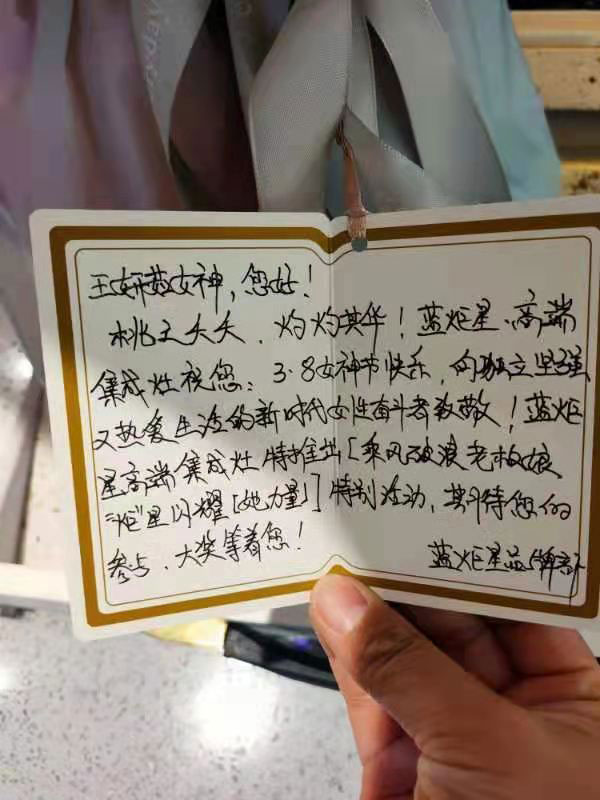 王妍女神,您好!
桃之夭夭、灼灼其华!蓝炬星、高端
集成灶祝您:3·8女神节快乐,向独立坚强
又热爱生活的新时代女性奋斗者致敬!蓝炬
星高端集成灶特推出[乘风破浪老板娘
“炬”星闪耀[她力量]]特别活动,期待您的
参与、大奖等着您!
蓝炬星品牌部